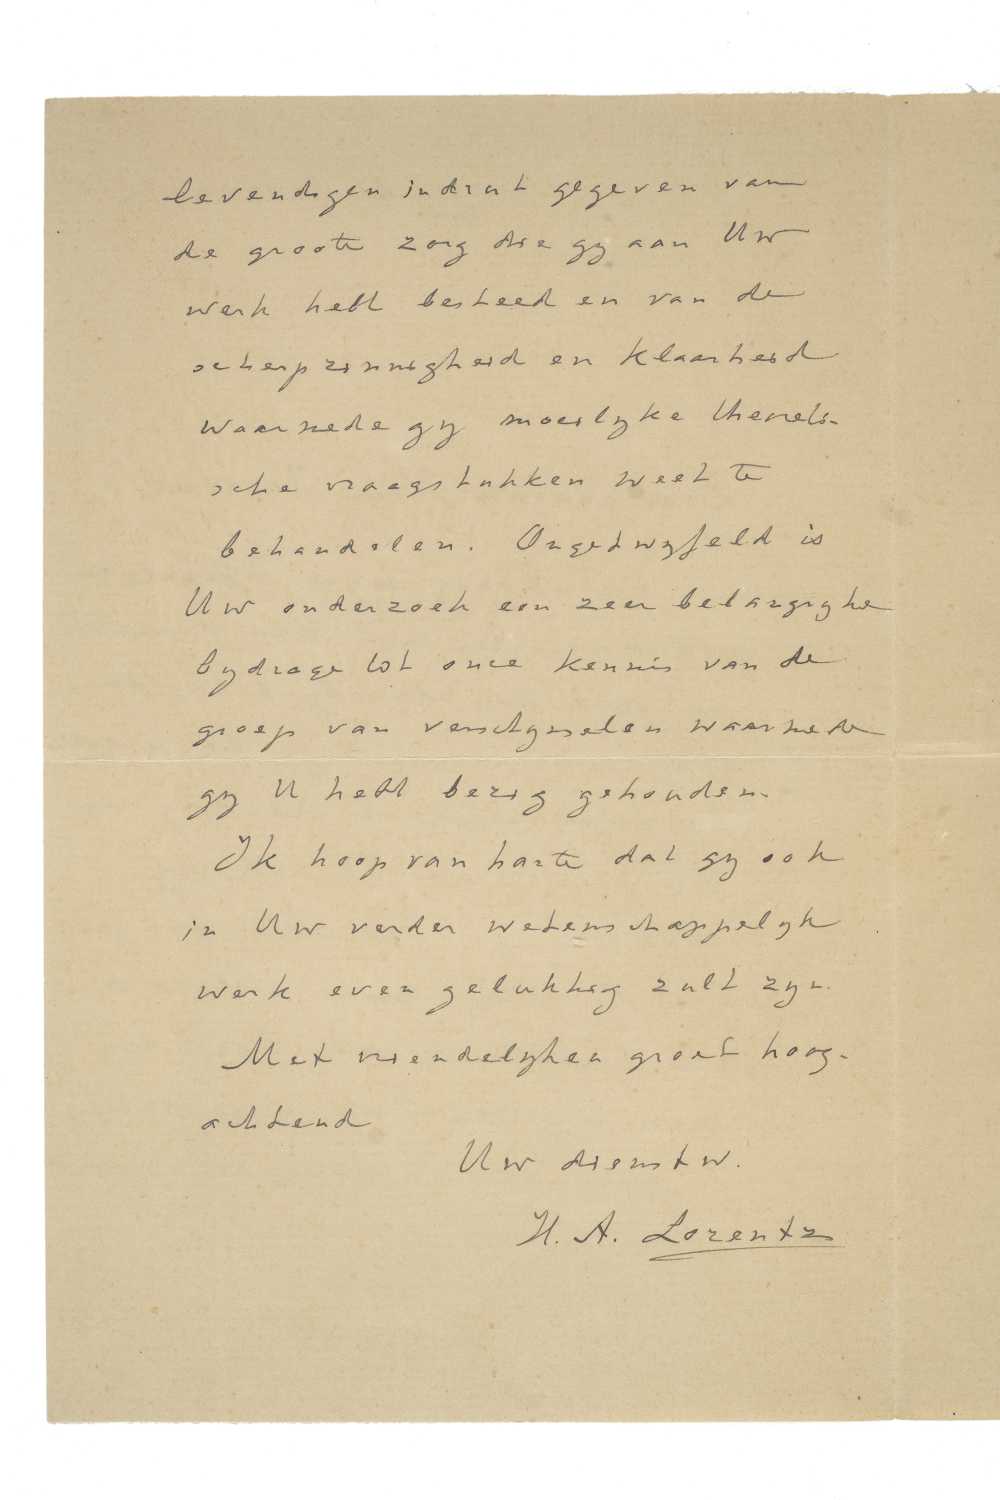 levendigen indruk gegeven van
de groote zorg die gy aan Uw
werk hebt besteed en van de
scherpzinnigheid en klaarheid
waarmede gy moeilyke theoreti-
sche vraagstukken weet te
behandelen. Ongetwyfeld is
Uw onderzoek een zeer belangryke
bydrage tot onze kennis van de
groep van verschynselen waarmede
gy U hebt bezig gehouden.
Ik hoop van harte dat gy ook
in Uw verder wetenschappelyk
werk even gelukkig zult zyn.
Met vriendelyken groet hoog-
achtend
Uw dienstw.
H. A. Lorentz